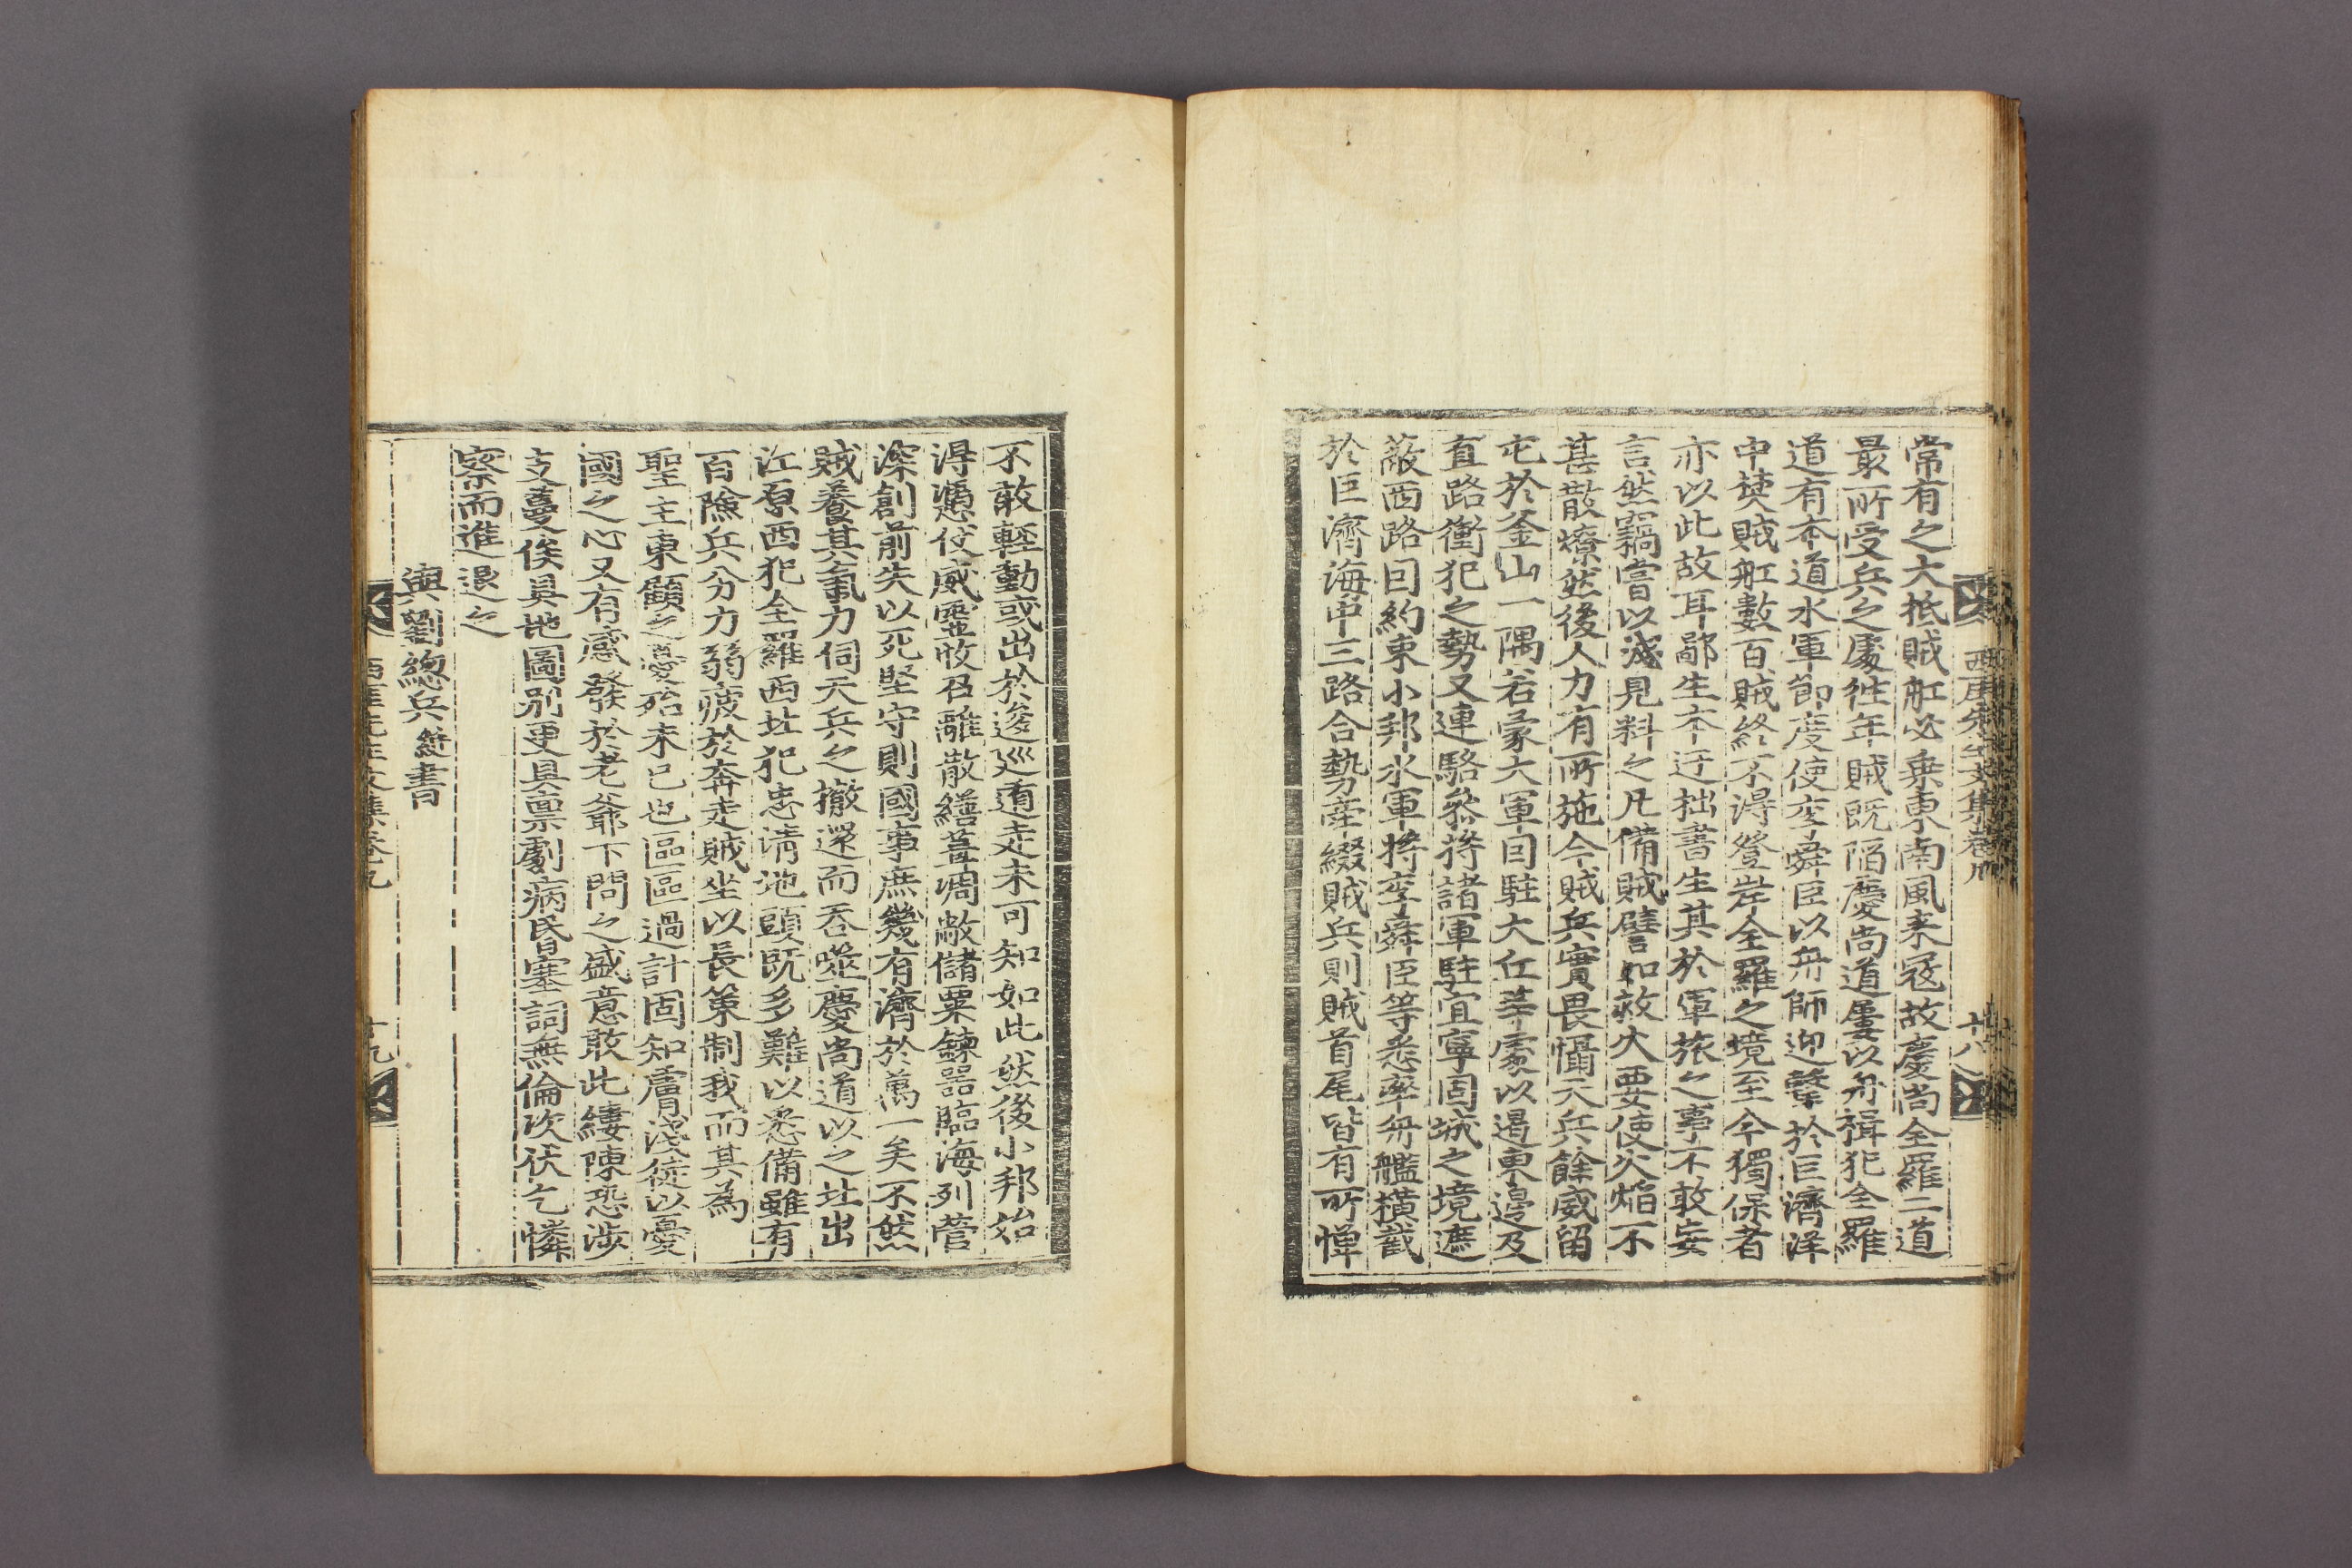 西厓先生文集卷九
十八
常有之大抵賊舡必乗東南風来冦故慶尚全羅二道
最所受兵之處徃年賊既陷慶尚道屢以舟楫犯全羅
道有本道水軍節度使李舜臣以舟師迎擊於巨濟洋
中焚賊舡數百賊終不得登岸全羅之境至今獨保者
亦以此故耳鄙生本迂拙書生其於軍旅之事不敢妄
言然竊嘗以淺見料之凡備賊譬如救火要使火焰不
甚散燎然後人力有所施今賊兵實畏懾天兵餘威留
屯於釜山一隅若蒙大軍回駐大丘等處以遏東邊及
直路衝犯之勢又連駱叅將諸軍駐宜寧固城之境遮
蔽西路回約束小邦水軍將李舜臣等悉率舟艦橫截
於巨濟海中三路合勢牽綴賊兵則賊首尾皆有所憚
不敢輕動或出於逡廵遁走未可知如此然後小邦始
得憑仗威靈收召離散繕葺凋敝儲粟鍊器臨海列營
深創前失以死堅守則國事庶幾有濟於萬一矣不然
賊養其氣力伺天兵之撤還而吞噬慶尚道以之北出
江原西犯全羅西北犯忠淸地頭既多難以悉備雖有
百險兵分力弱疲於奔走賊坐以長策制我而其為
聖主東顧之憂殆未已也區區過計固知膚淺徒以憂
國之心又有感發於老爺下問之盛意敢此縷陳恐涉
支蔓俟具地圖别更具禀劇病昏塞詞無倫次伏乞憐
察而進退之
與劉總兵綎書
西厓先生文集卷九
十九